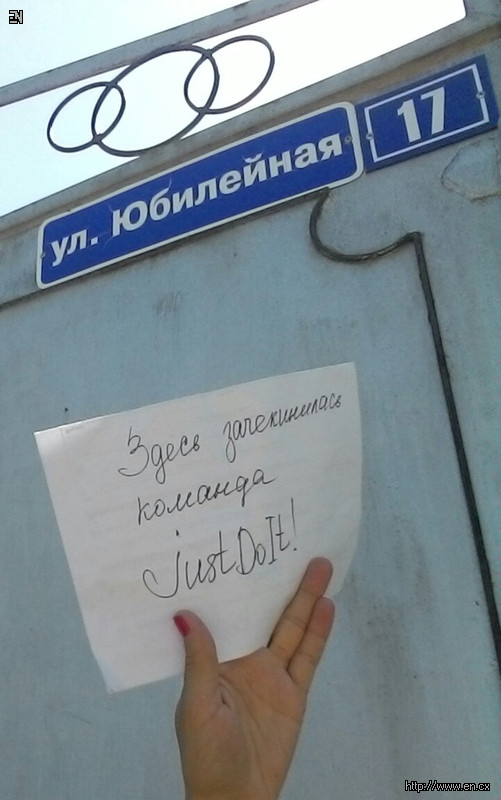 EN
ул. Юбилейная
17
Здесь зачекинилась
команда
justDoIt!
http://www.en.cx